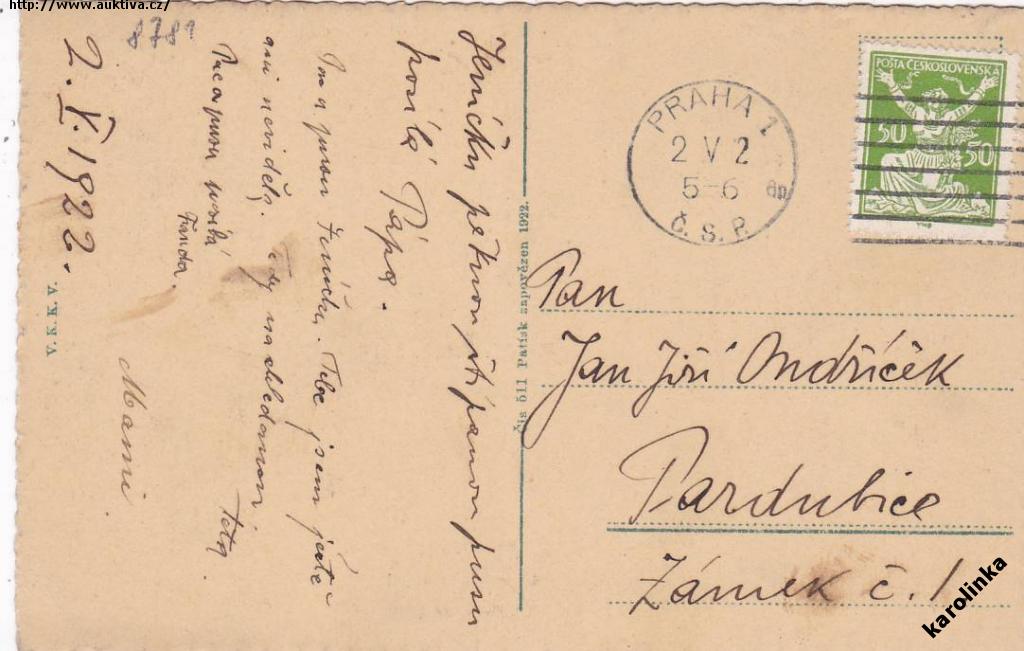 http://www.auktiva.cz/
8781
2. V. 1922.
Jeníčku pěknou št pusu
posílá Pápa.
pusou Jeníčku. Tebe jsem ještě
ani neviděl,
na shledanou.
Teta
pusu posílá
Fanda.
Mami
V. K. K. V.
Čís 511 Patisk zapovězen 1922.
PRAHA 1
2 V 2
5-6
Č. S. P.
POŠTA ČESKOSLOVENSKÁ
50 50
Pan
Jan Jiří Ondříček
Pardubice
Zámek č. 1
karolinka